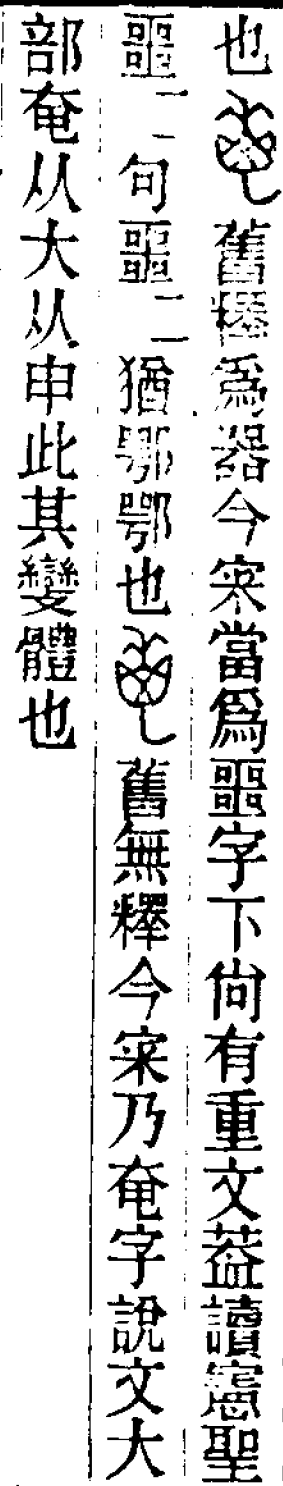 也舊釋爲器今宷當爲噩字下尙有重文葢讀憲聖
噩二句噩二猶鄂鄂也舊無釋今宷乃奄字說文大
部奄从大从申此其變體也